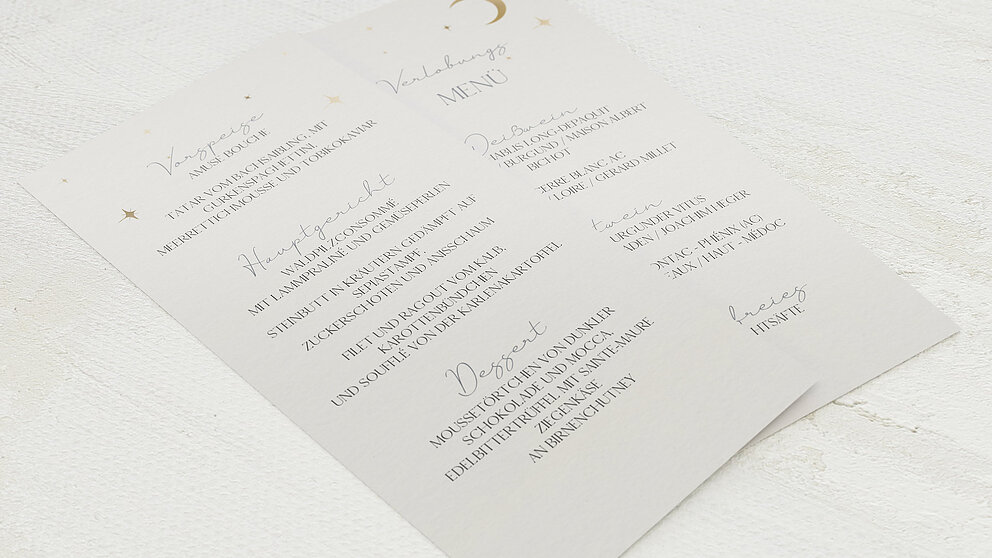 Vorspeise
AMUSE BOUCHE
TATAR VOM BACHSAIBLING, MIT
GURKENSPAGHETTINI,
MEERRETTICHMOUSSE UND TOBIKOKAVIAR
Hauptgericht
WALDPILZCONSOMMÉ
MIT LAMMPRALINÉ UND GEMÜSEPERLEN
STEINBUTT IN KRÄUTERN GEDÄMPFT AUF
SEPIASTAMPF AN
ZUCKERSCHOTEN UND ANISSCHAUM
FILET UND RAGOUT VOM KALB,
KAROTTENBÜNDCHEN
UND SOUFFLÉ VON DER KARLENAKARTOFFEL
Dessert
MOUSSETÖRTCHEN VON DUNKLER
SCHOKOLADE UND MOCCA
EDELBITTERTRÜFFEL MIT SAINTE-MAURE
ZIEGENKÄSE
AN BIRNENCHUTNEY
Verlobungs
MENÜ
ABLIS LONG-DEPAQUIT
BURGUND / MAISON ALBERT
BICHOT
ERRE BLANC AC
LOIRE / GERARD MILLET
twein
URGUNDER VITUS
ADEN / JOACHIM HEGER
ONTAC - PHÉNIX (AC)
EAUX / HAUT - MÉDOC
freies
HTSÄFTE